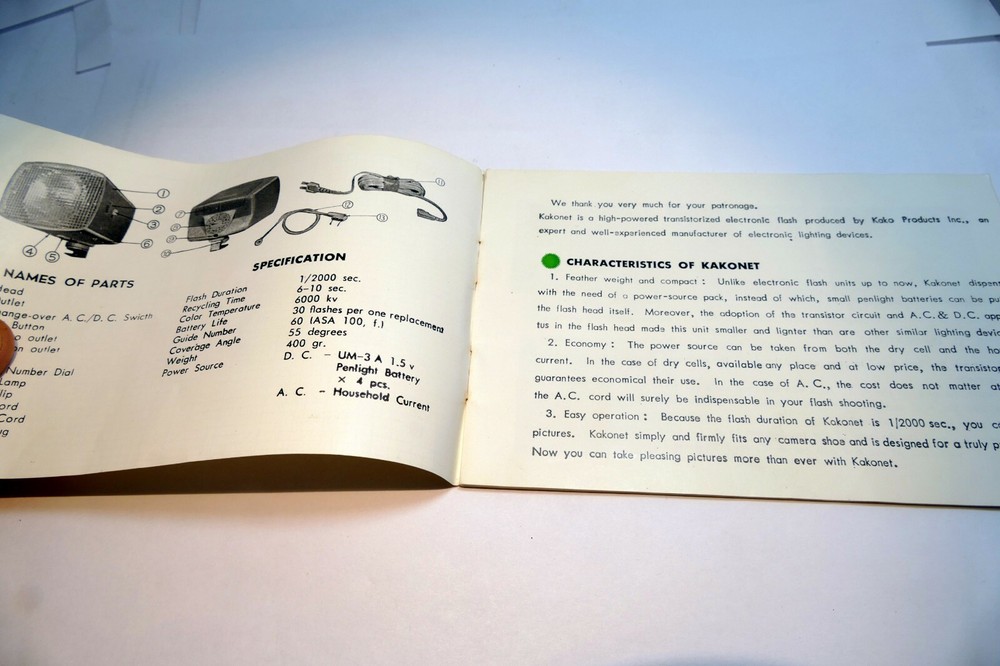 ①
②
③
④
⑤
⑥
⑪
⑫
⑬
NAMES OF PARTS
ead
utlet
ange-over A. C./D. C. Swicth
Button
o outlet
on outlet
Number Dial
Lamp
lip
ord
Cord
ug
SPECIFICATION
Flash Duration 1/2000 sec.
Recycling Time 6-10 sec.
Color Temperature 6000 kv
Battery Life 30 flashes per one replacement
Guide Number 60 (ASA 100, f.)
Coverage Angle 55 degrees
Weight 400 gr.
Power Source D. C. - UM-3 A 1.5 v
Penlight Battery
× 4 pcs.
A. C. - Household Current
We thank you very much for your patronage.
Kakonet is a high-powered transistorized electronic flash produced by Kako Products Inc., an
expert and well-experienced manufacturer of electronic lighting devices.
CHARACTERISTICS OF KAKONET
1. Feather weight and compact : Unlike electronic flash units up to now, Kakonet dispen
with the need of a power-source pack, instead of which, small penlight batteries can be pa
the flash head itself. Moreover, the adoption of the transistor circuit and A. C. & D. C. app
tus in the flash head made this unit smaller and lignter than are other similar lighting devic
2. Economy : The power source can be taken from both the dry cell and the ho
current. In the case of dry cells, available any place and at low price, the transistor
guarantees economical their use. In the case of A. C., the cost does not matter at
the A.C. cord will surely be indispensable in your flash shooting.
3. Easy operation : Because the flash duration of Kakonet is 1/2000 sec., you c
pictures. Kakonet simply and firmly fits any camera shoe and is designed for a truly p
Now you can take pleasing pictures more than ever with Kakonet.